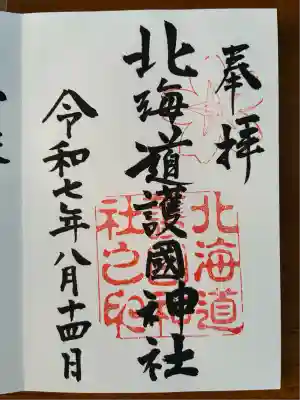 奉拝
北海道護國神社
北海道護國神社之印
令和七年八月十四日